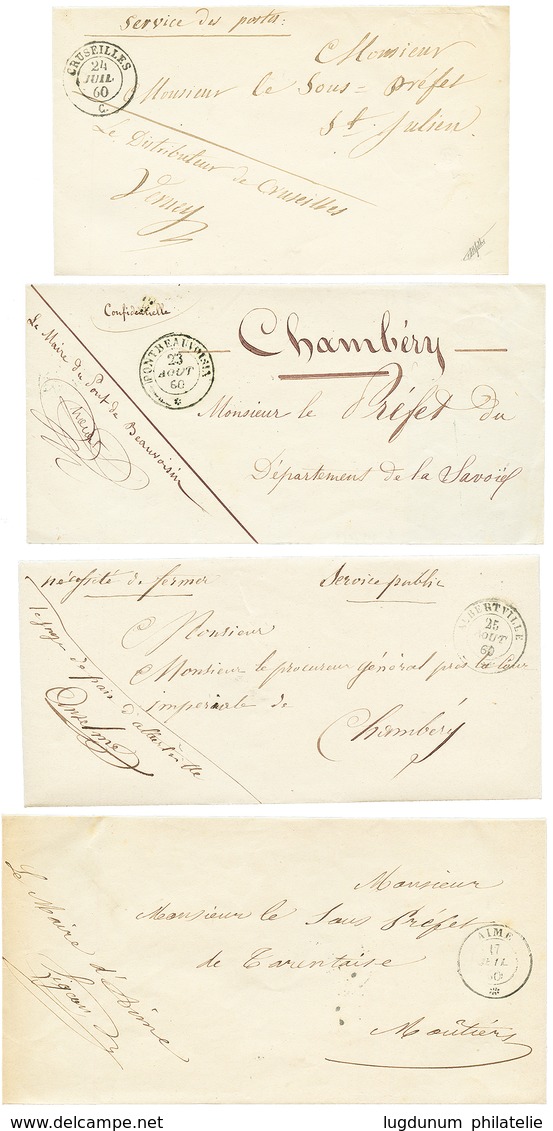 Service des postes:
CRUSEILLES
24
JUIL
60
C.
Monsieur
Monsieur le Sous=Préfet
St. Julien
Le Distributeur de Cruseilles
Confidentielle
Chambéry
PONTBEAUVOISIN
23
AOUT
60
Monsieur le Préfet du
Département de la Savoie
Le Maire du Pont de Beauvoisin
nécessité de fermer
Service public
ALBERTVILLE
25
AOUT
60
Monsieur
Monsieur le procureur général près la Cour
impériale de
Chambéry
le juge de paix d'albertville
Anselme
Monsieur
Monsieur le Sous Préfet
de Tarentaise
Moûtiers
AIME
17
JUIL
60
Le Maire d'Aime
delcampe.net
lugdunum philatelie